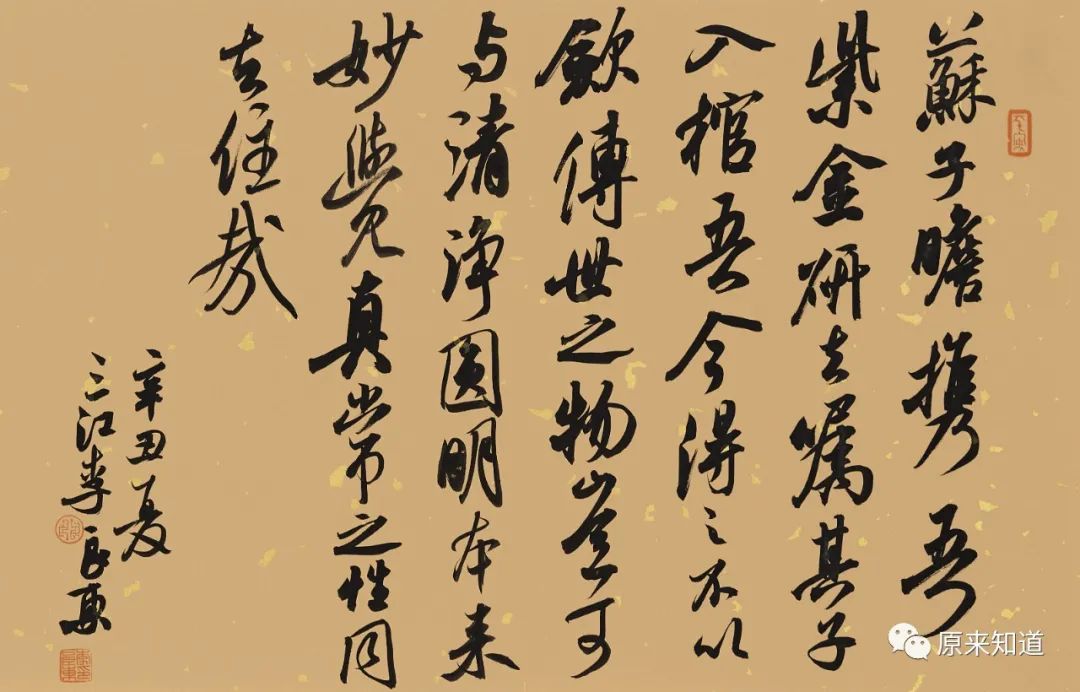 蘇子瞻携吾
紫金研去嘱其子
入棺吾今得之不以
歛傳世之物豈可
与清淨圆明本来
妙觉真常之性同
去住哉
辛丑夏
三江李
原来知道